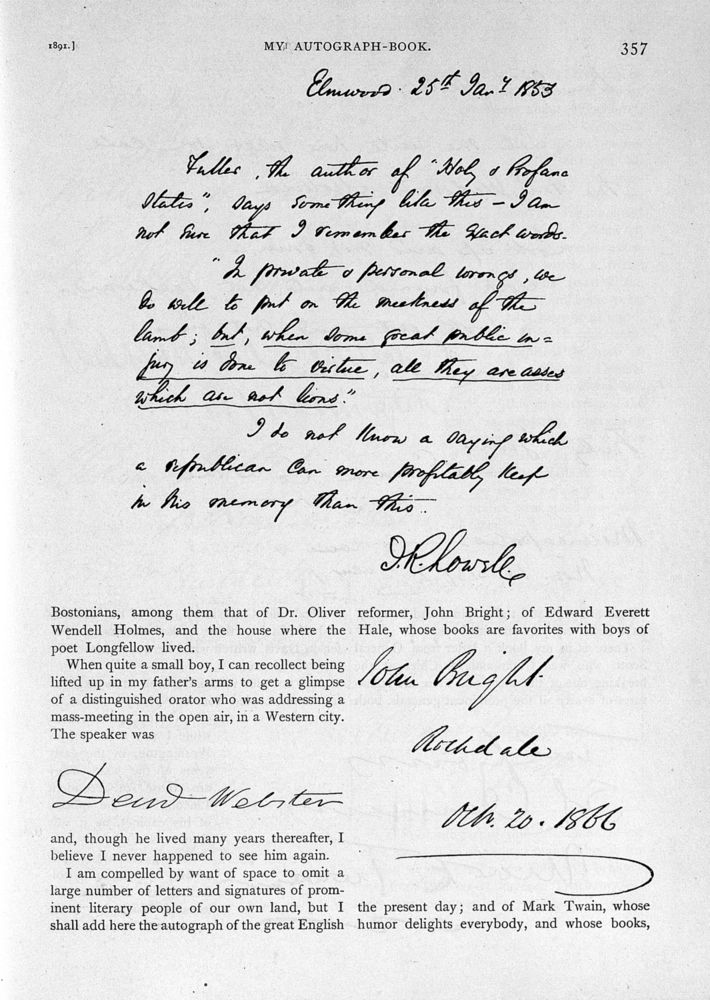 1891.]
MY AUTOGRAPH-BOOK.
357
Elmwood. 25th Jany 1853
Fuller, the author of "Holy & Profane
States", says something like this – I am
not sure that I remember the exact words.
"In private & personal wrongs, we
do well to put on the meekness of the
lamb; but, when some great public in=
jury is done to virtue, all they are asses
which are not lions."
I do not know a saying which
a republican can more profitably keep
in his memory than this.
J. R. Lowell.
Bostonians, among them that of Dr. Oliver
Wendell Holmes, and the house where the
poet Longfellow lived.
When quite a small boy, I can recollect being
lifted up in my father's arms to get a glimpse
of a distinguished orator who was addressing a
mass-meeting in the open air, in a Western city.
The speaker was
Danl Webster
and, though he lived many years thereafter, I
believe I never happened to see him again.
I am compelled by want of space to omit a
large number of letters and signatures of prom-
inent literary people of our own land, but I
shall add here the autograph of the great English
reformer, John Bright; of Edward Everett
Hale, whose books are favorites with boys of
John Bright
Rochdale
Oct. 20. 1866
the present day; and of Mark Twain, whose
humor delights everybody, and whose books,